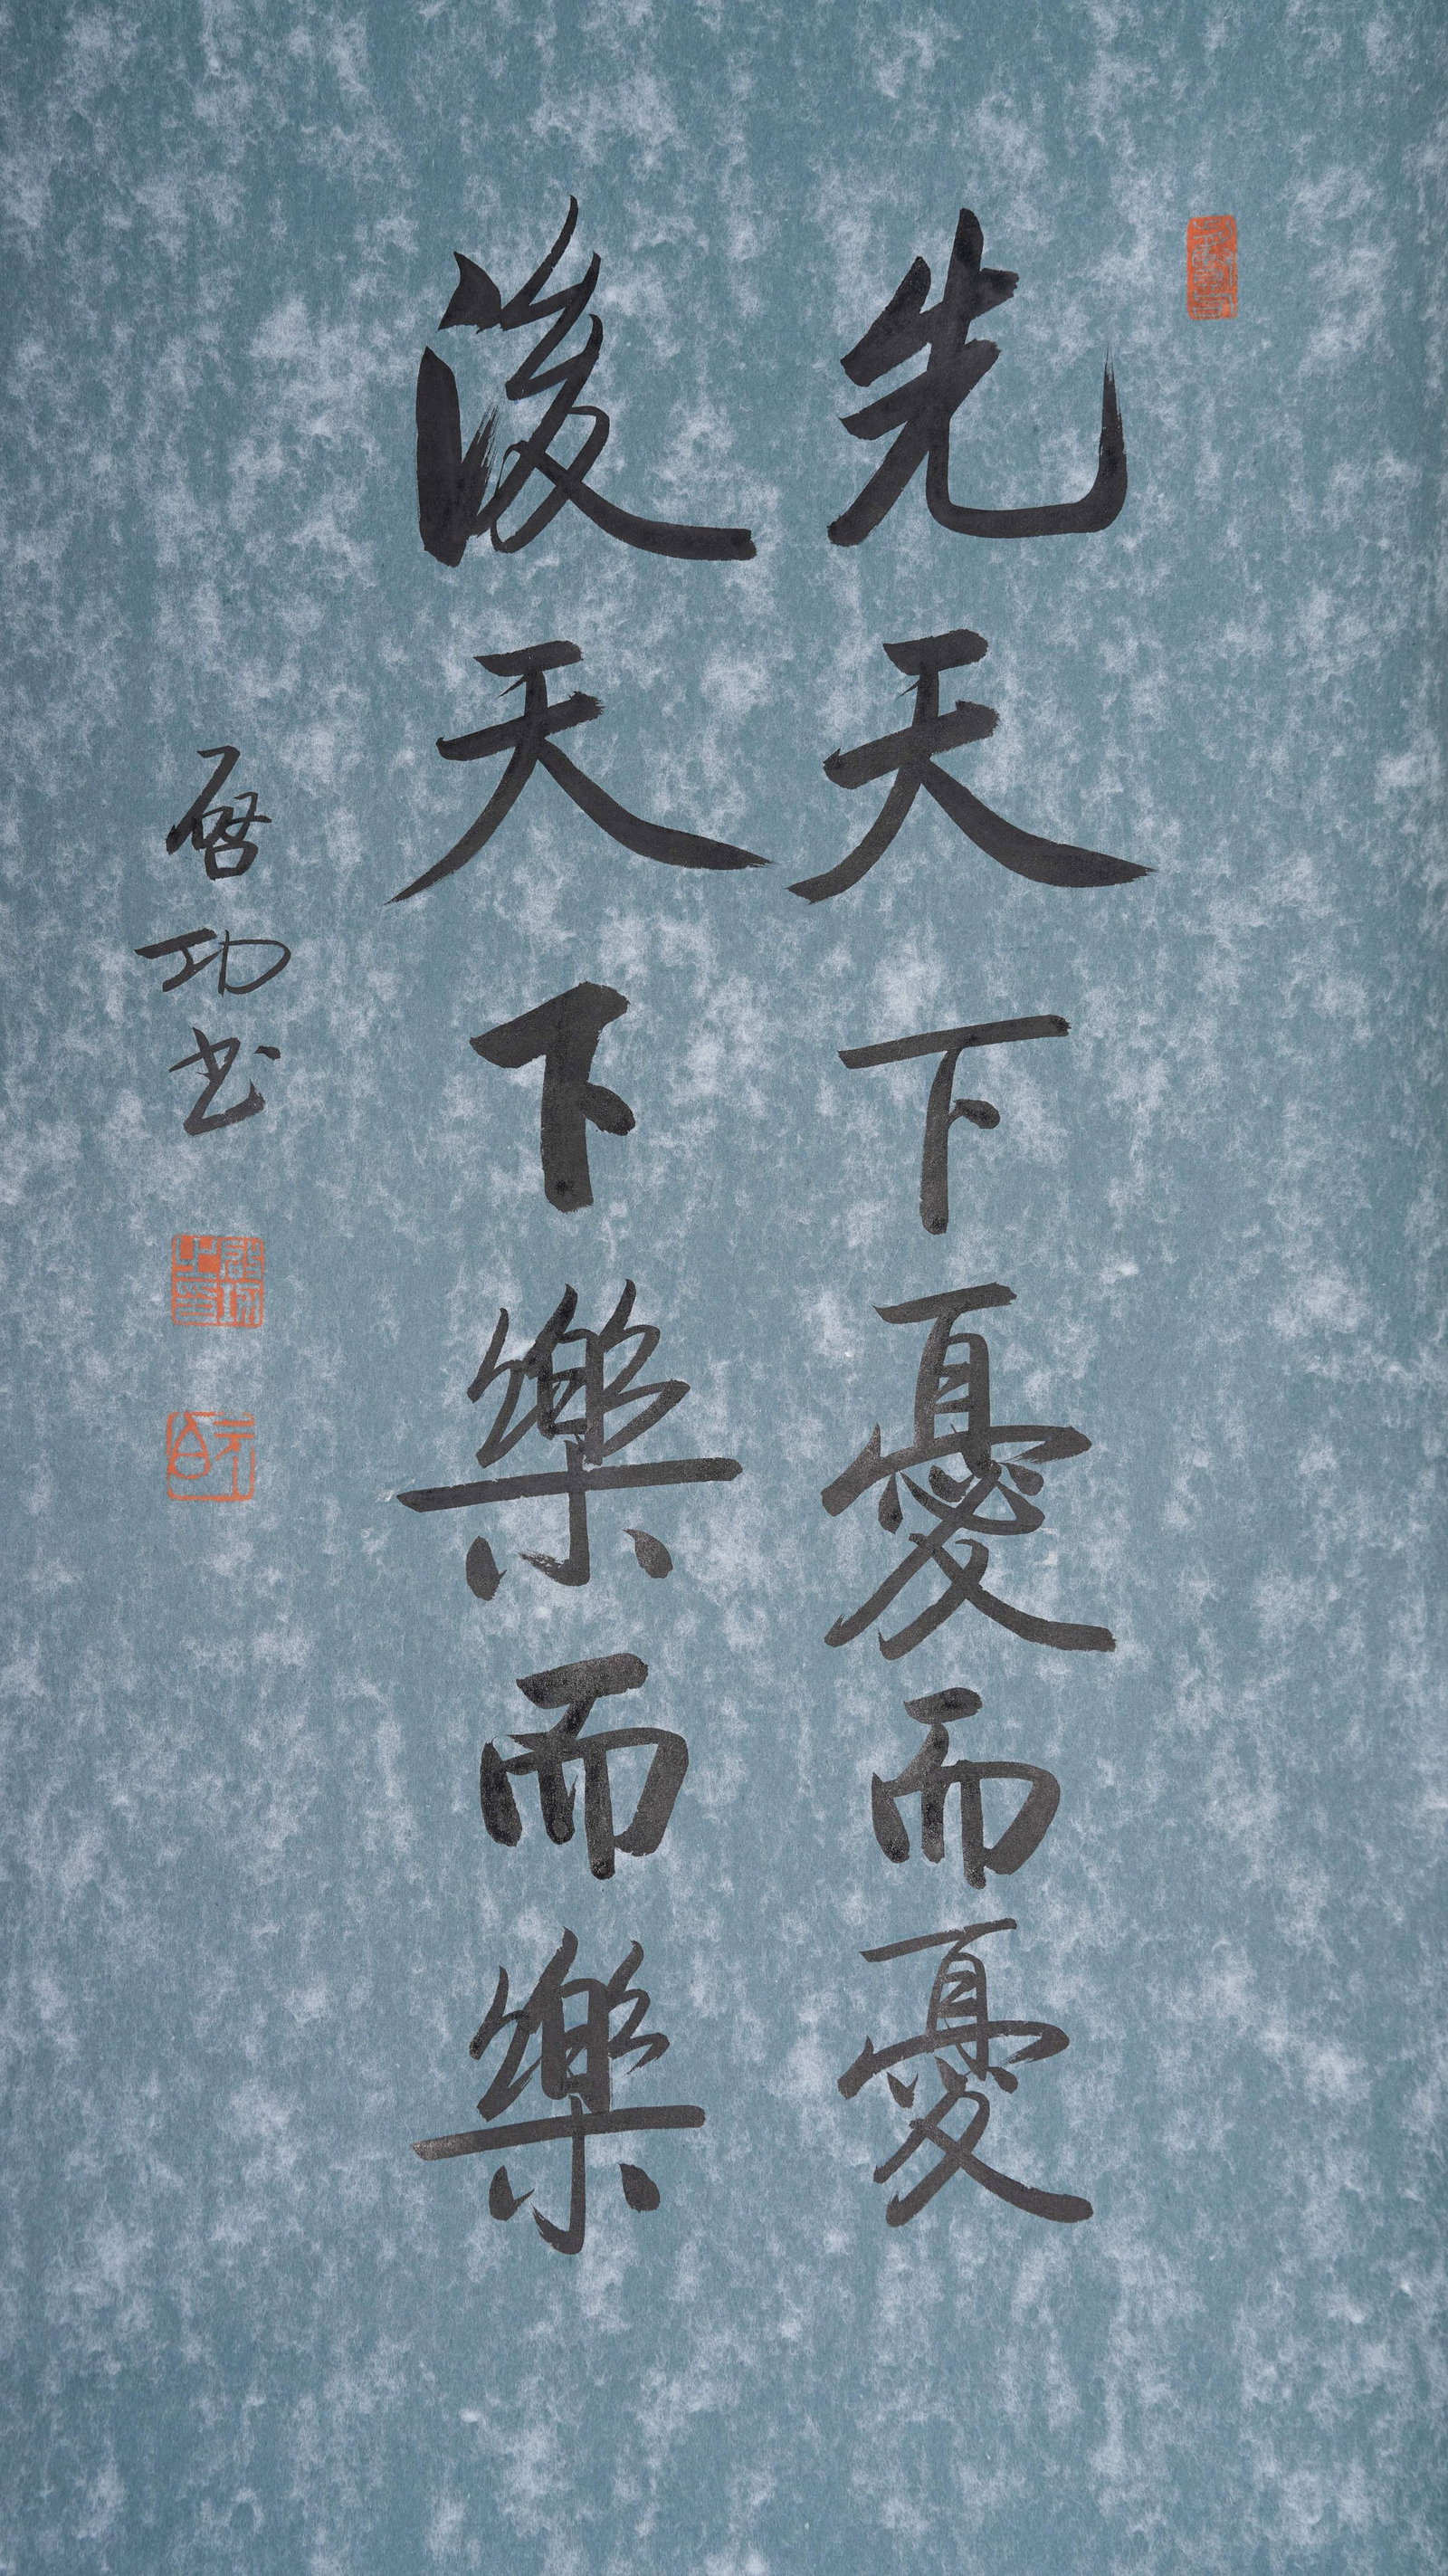 先天下憂而憂
後天下樂而樂
啓功书